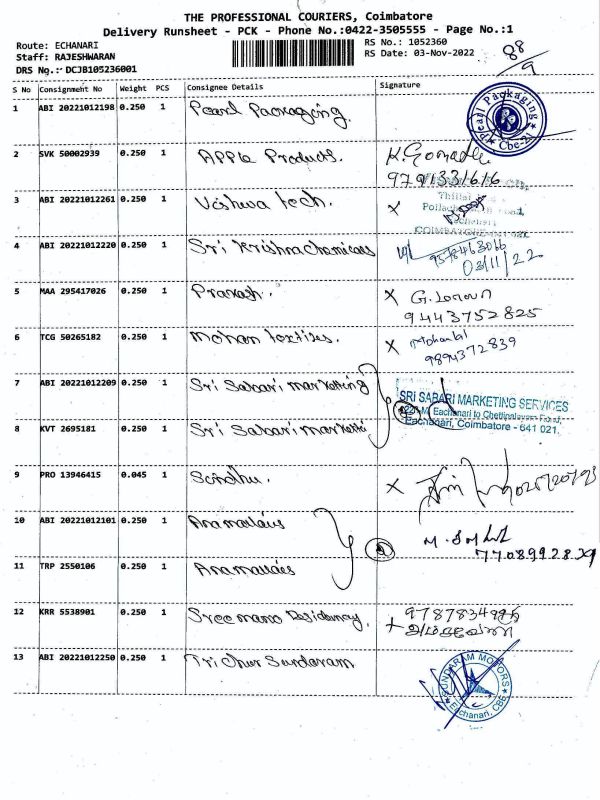 THE PROFESSIONAL COURIERS, Coimbatore
Delivery Runsheet - PCK - Phone No.:0422-3505555 - Page No.:1
Route: ECHANARI
RS No.: 1052360
Staff: RAJESHWARAN
RS Date: 03-Nov-2022
88/9
DRS No.: DCJB105236001
S No Consignment No Weight PCS Consignee Details Signature
1 ABI 20221012198 0.250 1 Pearl Packaging.
Pearl Packaging Cbe-21
2 SVK 50002939 0.250 1 APPle Products. K. Gomadhi
9791331616
3 ABI 20221012261 0.250 1 Vishwa tech. X
4 ABI 20221012220 0.250 1 Sri Krishna Chemicals
9578463066
03/11/22
5 MAA 295417026 0.250 1 Prakash. X G.
9443752825
6 TCG 50265182 0.250 1 Mohan textiles. X
9894372839
7 ABI 20221012209 0.250 1 Sri Sabari marketing
SRI SABARI MARKETING SERVICES
Eachanari to Chettipalayam Road,
Eachanari, Coimbatore - 641 021.
8 KVT 2695181 0.250 1 Sri Sabari
9 PRO 13946415 0.045 1 Sindhu. X
10 ABI 20221012101 0.250 1 Anamallais
7708992829
11 TRP 2550106 0.250 1 Anamallais
12 KRR 5538901 0.250 1 Sree mano Residency.
13 ABI 20221012250 0.250 1 Trichur Sundaram
SUNDARAM MOTORS
Eachanari, CBE